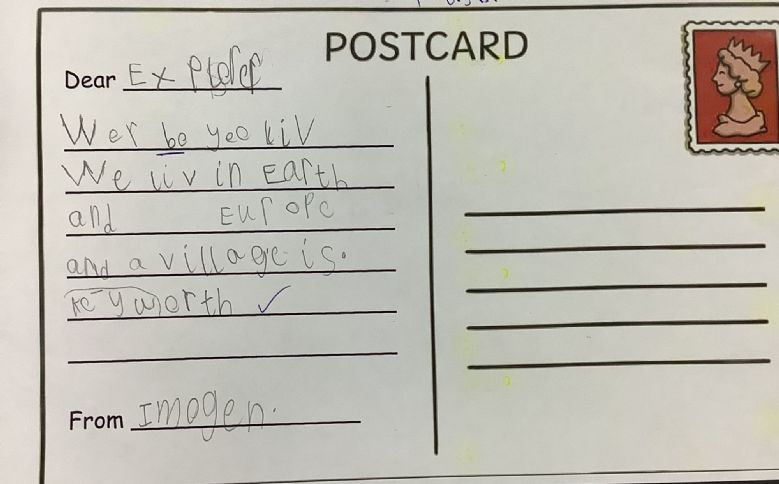 POSTCARD
Dear Explorer
Wer bo yeo liv
We liv in Earth
and Europe
and a village is.
keyworth
From Imogen.